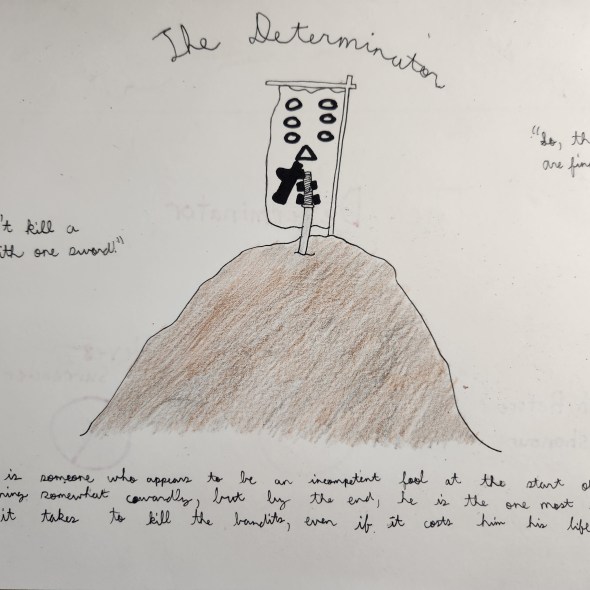 The Determinator
"So, th
are fin
't kill a
ith one sword!"
is someone who appears to be an incompetent fool at the start o
ning somewhat cowardly, but by the end, he is the one most
it takes to kill the bandits, even if it costs him his life